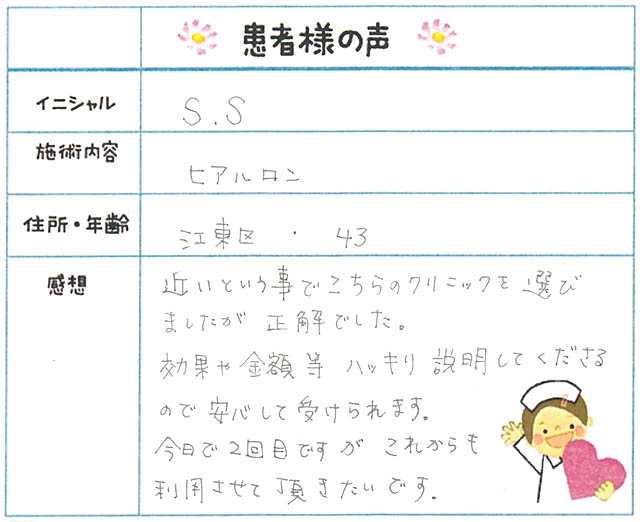 患者様の声
イニシャル S.S
施術内容 ヒアルロン
住所・年齢 江東区 ・ 43
感想 近いという事でこちらのクリニックを選び
ましたが 正解でした。
効果や金額等 ハッキリ説明してくださる
ので安心して受けられます。
今日で2回目ですが これからも
利用させて頂きたいです。